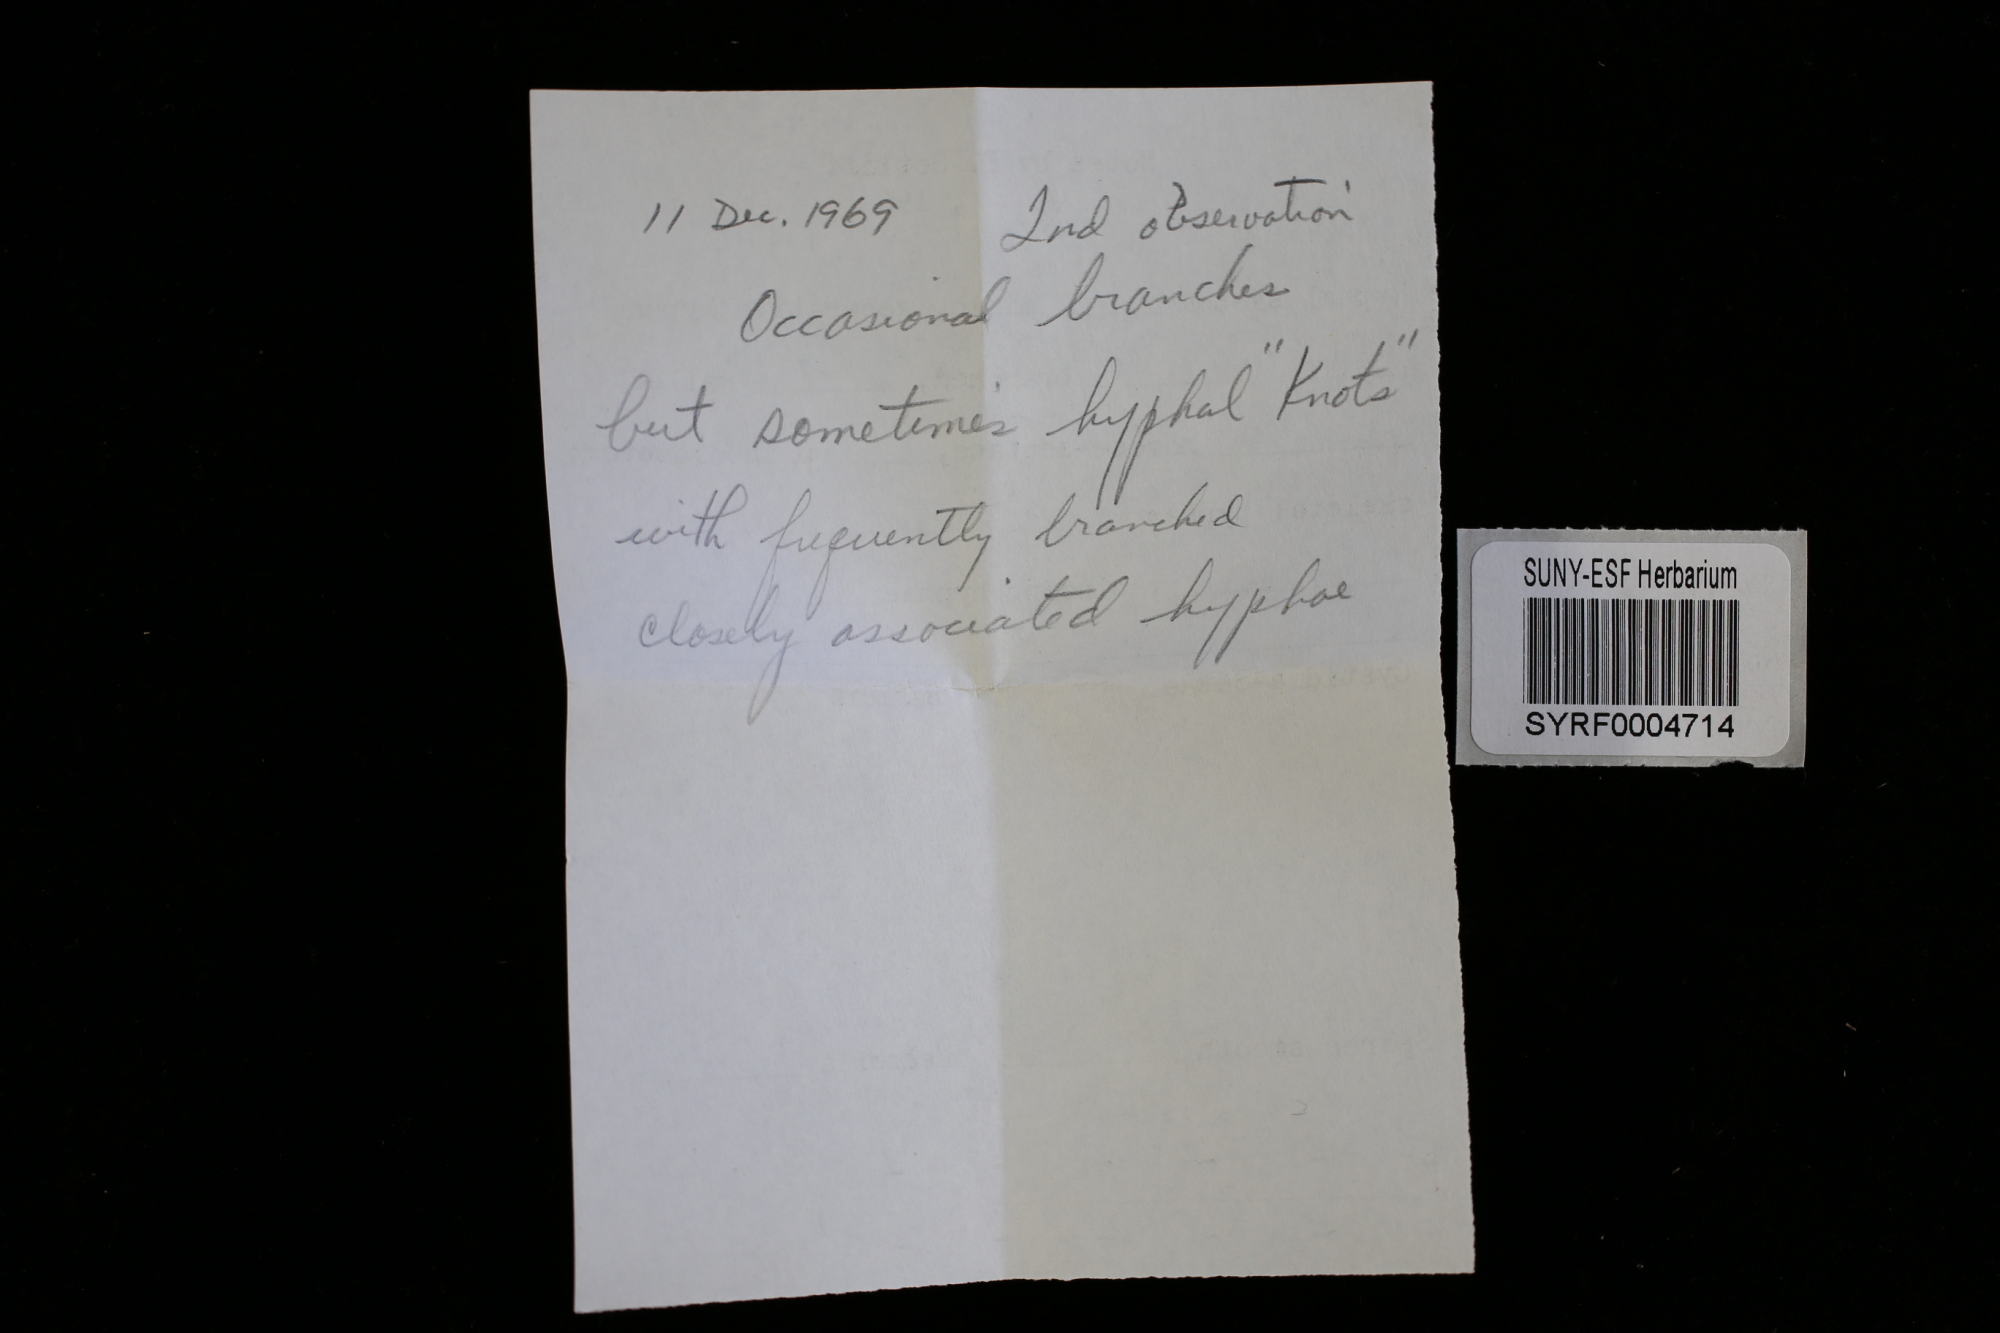 11 Dec. 1969 2nd observation
Occasional branches
but sometimes hyphal "Knots"
with frequently branched
closely associated hyphae
SUNY-ESF Herbarium
SYRF0004714